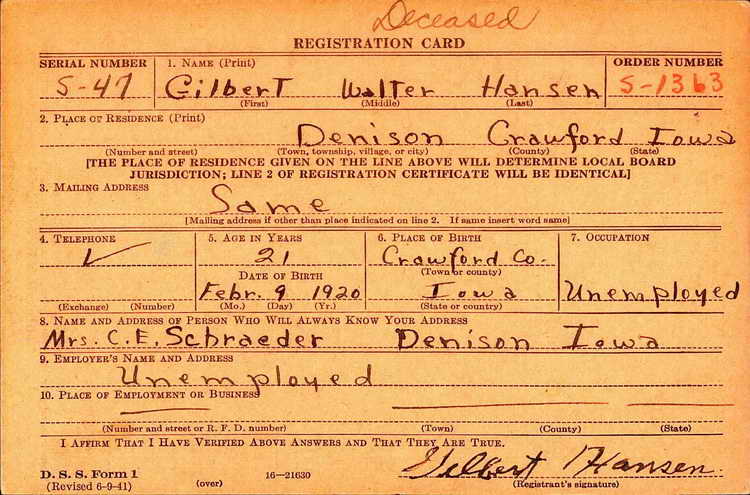 Deceased
REGISTRATION CARD
SERIAL NUMBER 1. NAME (Print) ORDER NUMBER
S-47 Gilbert Walter Hansen S-1363
(First) (Middle) (Last)
2. PLACE OF RESIDENCE (Print)
Denison Crawford Iowa
(Number and street) (Town, township, village, or city) (County) (State)
[THE PLACE OF RESIDENCE GIVEN ON THE LINE ABOVE WILL DETERMINE LOCAL BOARD
JURISDICTION; LINE 2 OF REGISTRATION CERTIFICATE WILL BE IDENTICAL]
3. MAILING ADDRESS
Same
[Mailing address if other than place indicated on line 2. If same insert word same]
4. TELEPHONE 5. AGE IN YEARS 6. PLACE OF BIRTH 7. OCCUPATION
21 Crawford Co.
DATE OF BIRTH (Town or county)
Febr. 9 1920 Iowa Unemployed
(Exchange) (Number) (Mo.) (Day) (Yr.) (State or country)
8. NAME AND ADDRESS OF PERSON WHO WILL ALWAYS KNOW YOUR ADDRESS
Mrs. C.E. Schraeder Denison Iowa
9. EMPLOYER'S NAME AND ADDRESS
Unemployed
10. PLACE OF EMPLOYMENT OR BUSINESS
(Number and street or R. F. D. number) (Town) (County) (State)
I AFFIRM THAT I HAVE VERIFIED ABOVE ANSWERS AND THAT THEY ARE TRUE.
Gilbert Hansen
D. S. S. Form 1 16—21630
(Revised 6-9-41) (over) (Registrant's signature)